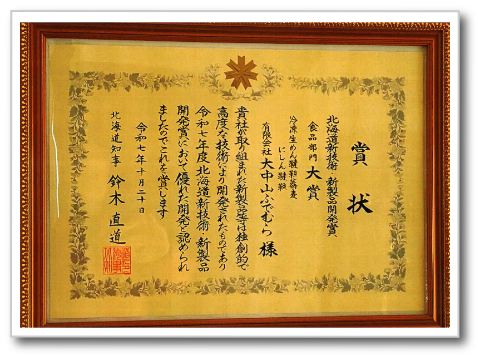 賞状
北海道新技術・新製品開発賞
食品部門 大賞
冷凍生めん鞋靼蕎麦
にしん鞋靼
有限会社大中山ふでむら 様
貴社が取り組まれた新製品等は独創的で
高度な技術により開発されたものであり
令和七年度北海道新技術・新製品
開発賞において優れた開発と認められ
ましたのでこれを賞します
令和七年十月二十日
北海道知事 鈴木直道